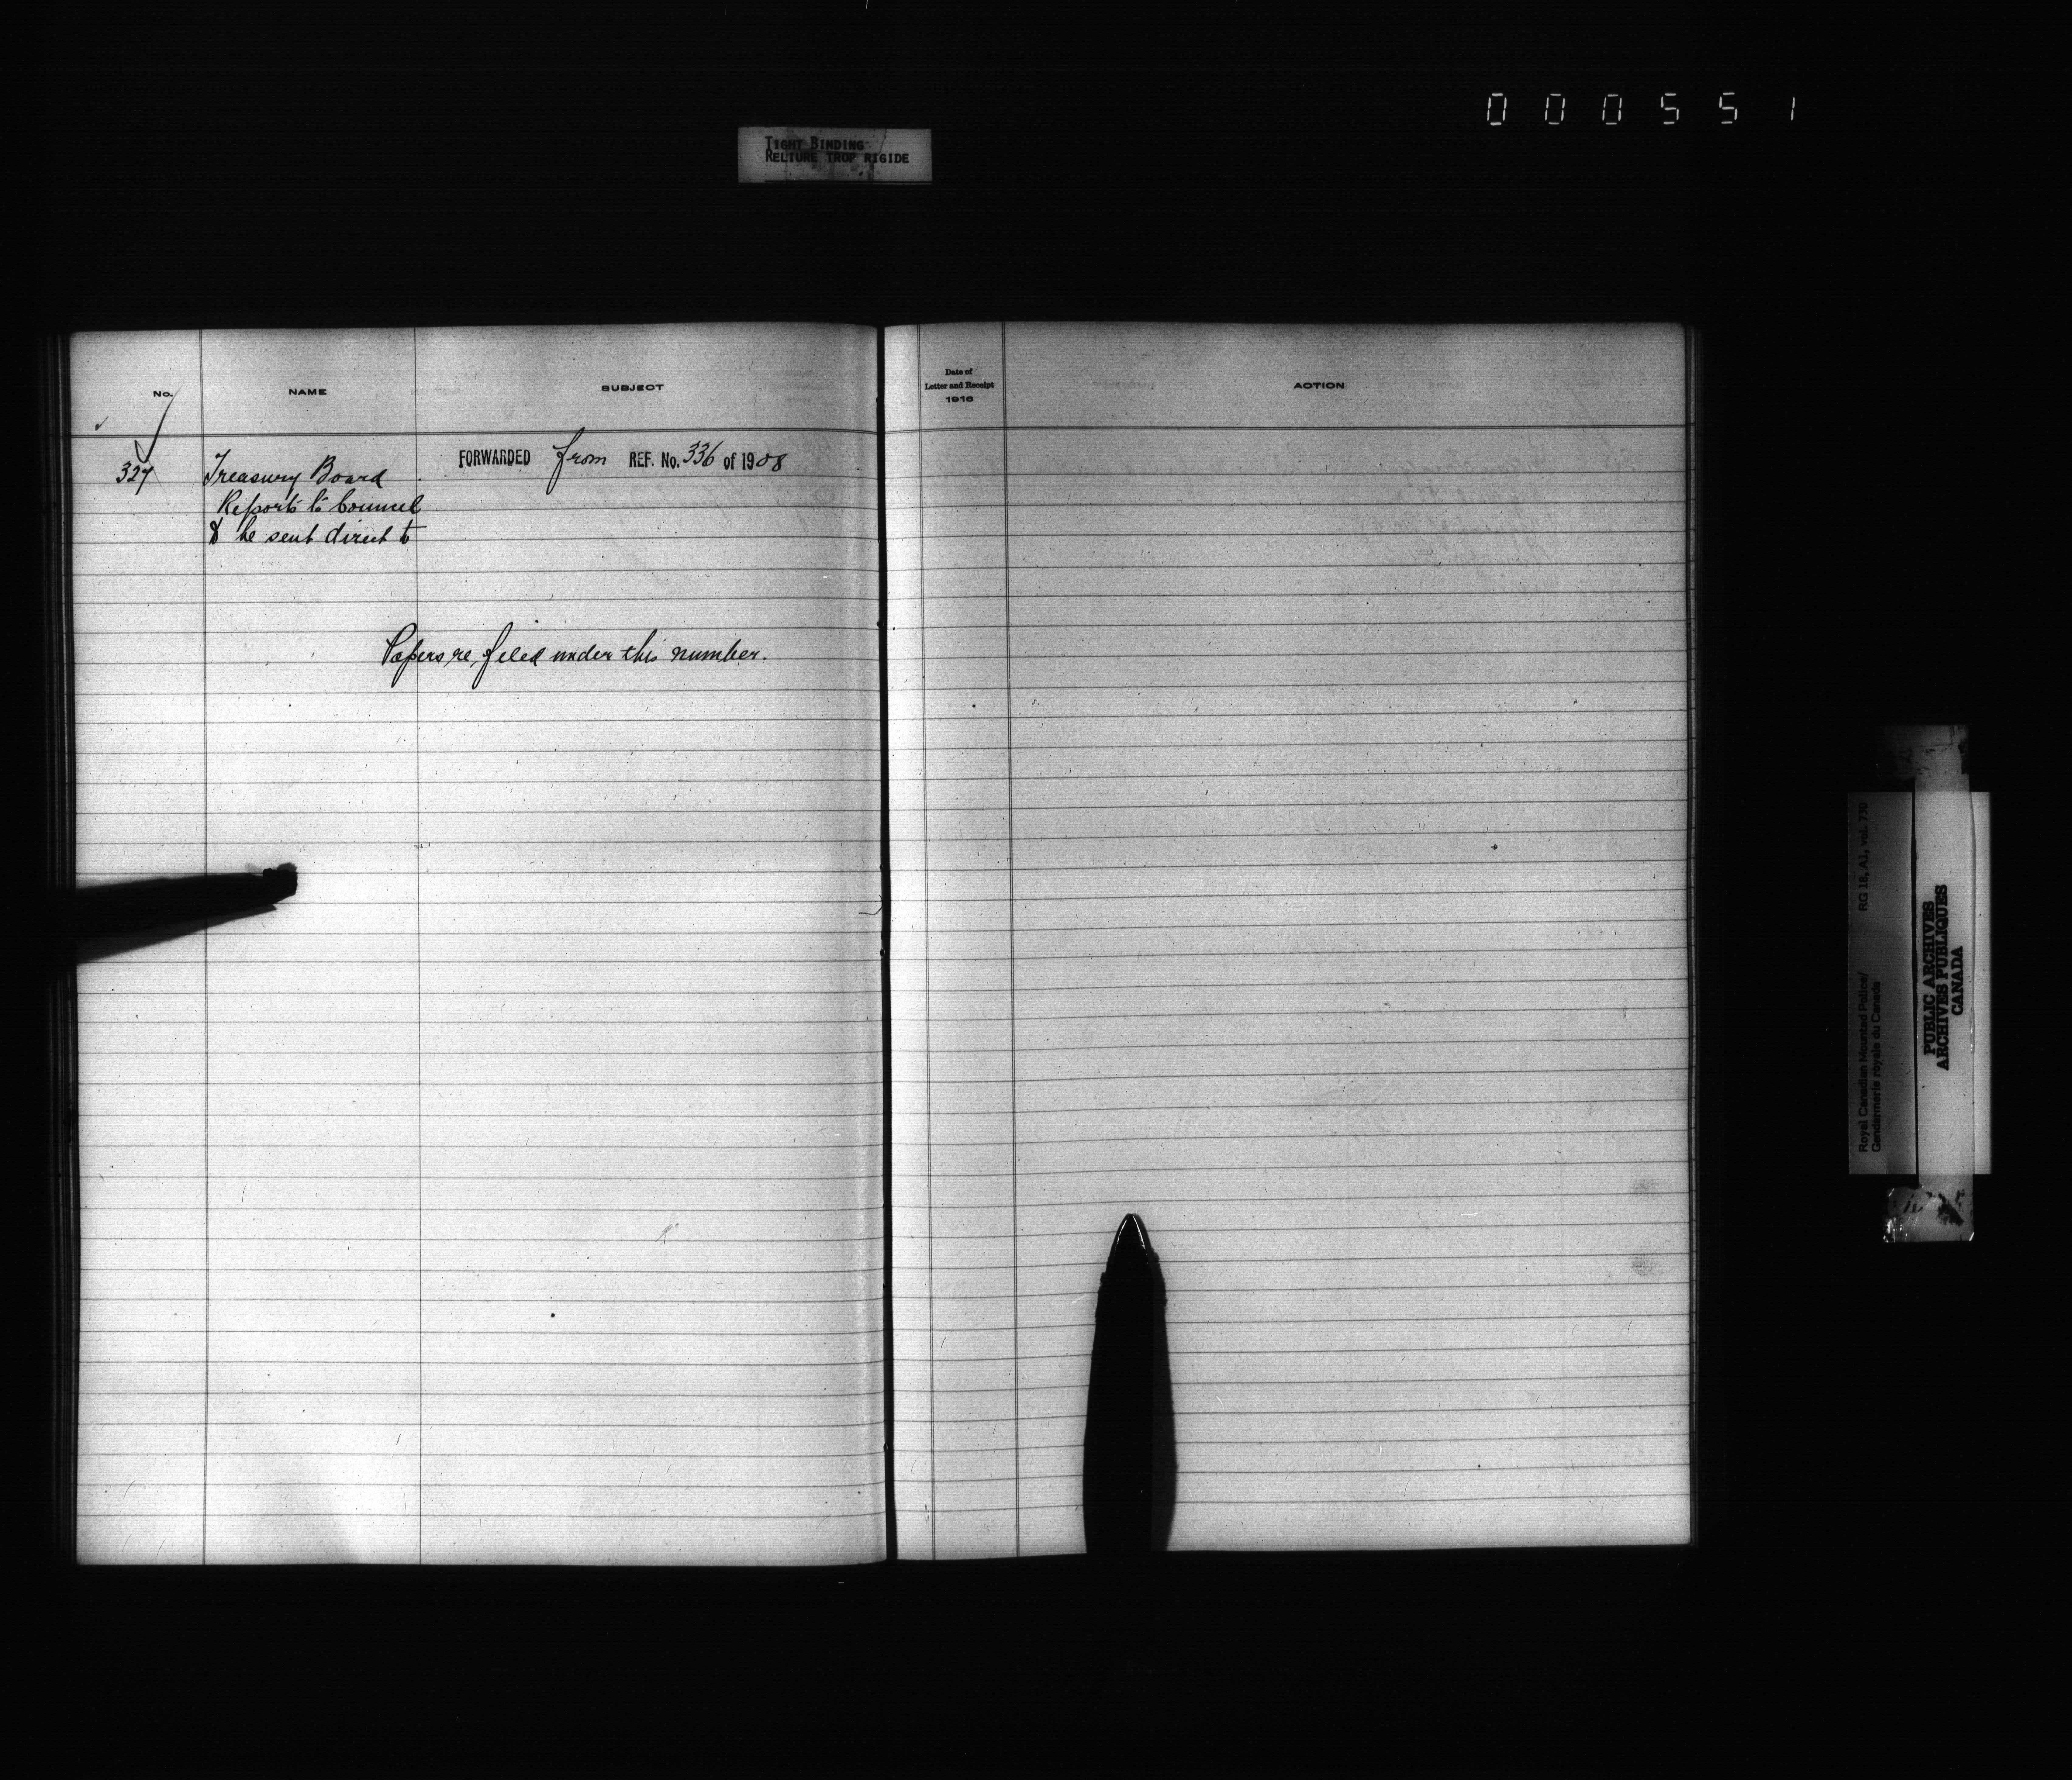 000551
TIGHT BINDING
RELIURE TROP RIGIDE
No.
NAME
SUBJECT
Date of
Letter and Receipt
1916
ACTION
327
Treasury Board
Reports to Council
to be sent direct to
FORWARDED from REF. No. 336 of 1908
Papers re, filed under this number.
Royal Canadian Mounted Police/ RG 18, A1, vol. 730
Gendarmerie royale du Canada
PUBLIC ARCHIVES
ARCHIVES PUBLIQUES
CANADA